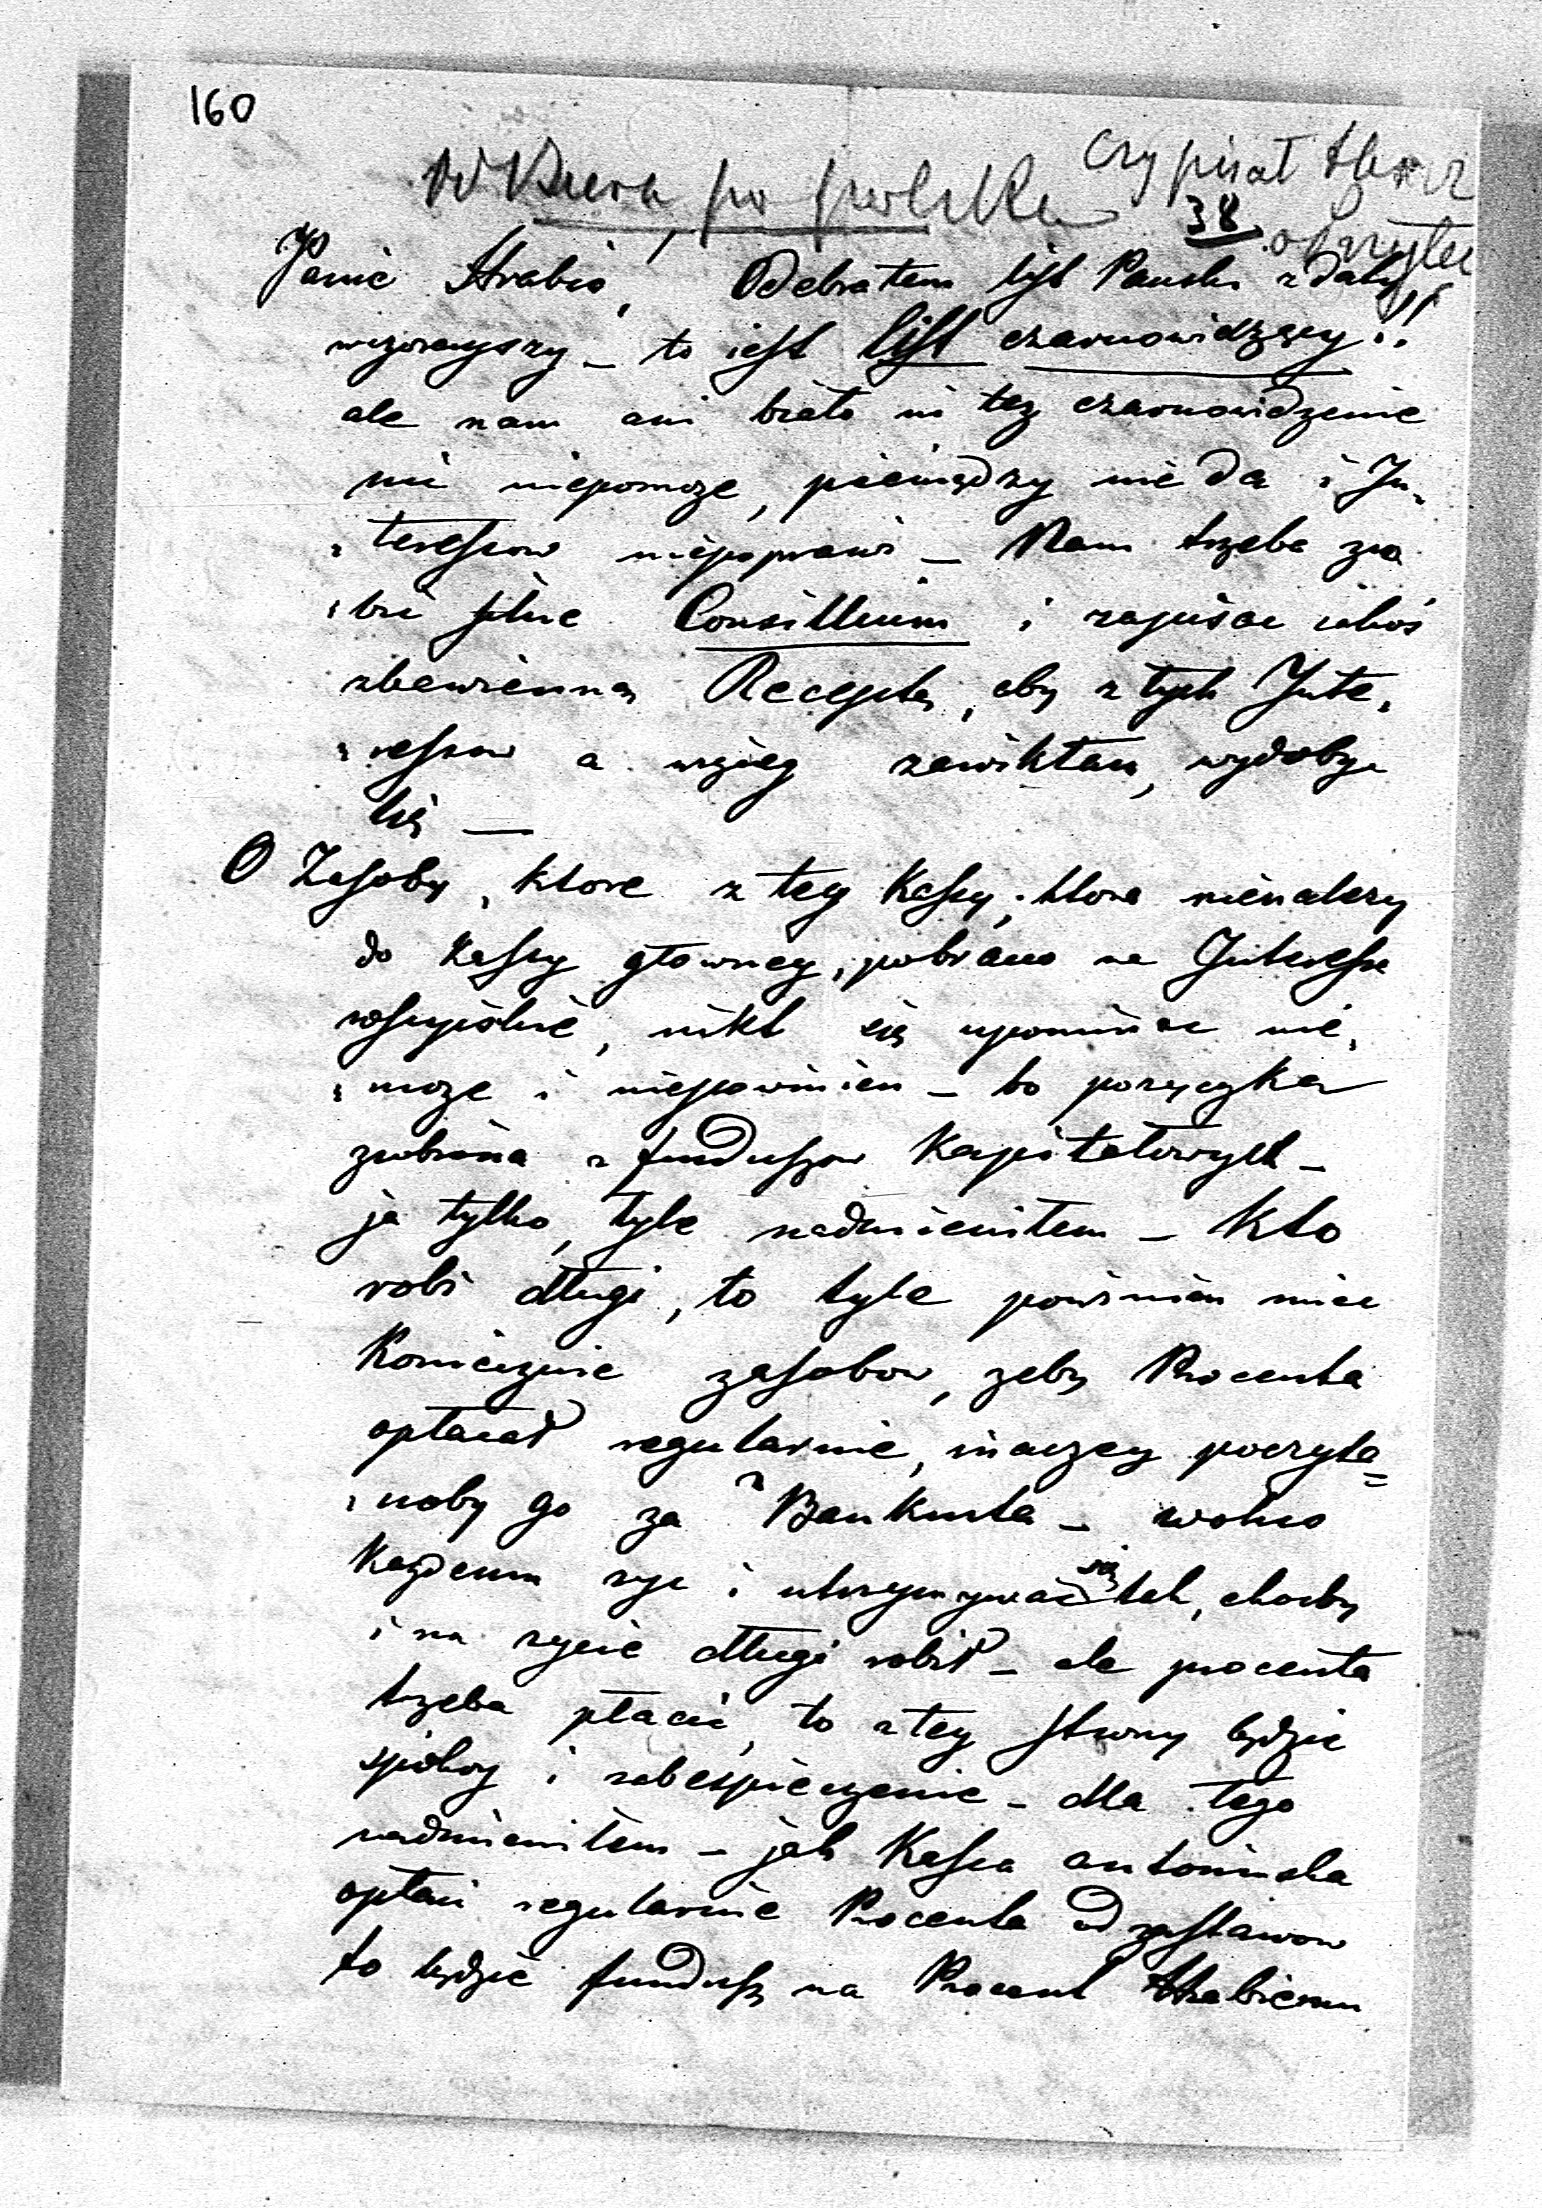 160
po polsku
czy pisał
38
Panie Hrabio, Odebrałem list Pański z daty
wczorayszy – to iest list czarnowidzący!!
ale nam ani biało ni też czarnowidzenie
nic niepomoże, pieniędzy nie da i In-
teressow niepoprawi – Nam trzeba zro
bić silne Consillium i zapisać iakoś
zbawienną Receptę, aby z tych Inte,
ressow a wzięy zawikłań, wydobyć
się —
O Zasoby, ktore z tey Kassy, ktora nienależy
do Kassy głowney, pobrano na Interessa
osobiste, nikt się upominać nie,
może i niepowinien – bo pożyczka
zrobiona z funduszow Kapitałowych –
ja tylko, tyle nadmieniłem – Kto
robi długi, to tyle powinien mieć
Koniecznie zasobow, żeby Procenta
opłacał regularnie, inaczey poczyta=
noby go za Bankruta – wolno
Każdemu żyć i utrzymywać się tak, choćby
i na życie długi robił – ale procenta
trzeba płacić, to z tey strony będzie
spokoy i zabespieczenie – dla tego
nadmieniłem – jak Kassa antonińska
opłaci regularnie Procenta od zastawow
to będzie fundusz na Procent Hrabiemu